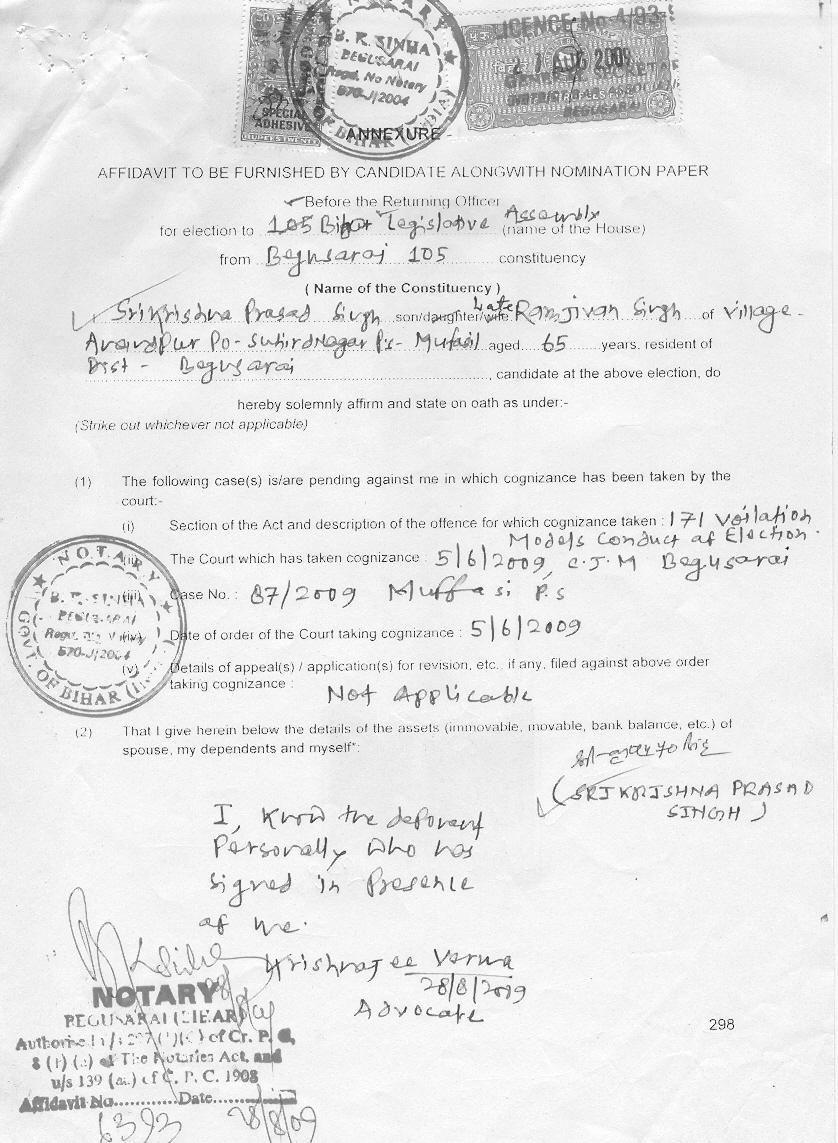 NOTARY
B. R. SINHA
BEGUSARAI
Regd. No Notary
570-J/2004
OF BIHAR (INDIA)
SPECIAL
ADHESIVE
LICENCE No 4/93-
21 AUG 2009
BEGUSARAI
ANNEXURE -
AFFIDAVIT TO BE FURNISHED BY CANDIDATE ALONGWITH NOMINATION PAPER
Before the Returning Officer
for election to 105 Bihar Legislative Assembly (name of the House)
from Begusarai 105 constituency
( Name of the Constituency )
Srikrishna Prasad Singh son/daughter/wife Late Ramjivan Singh of Village-
Anandpur Po- SuhirdNagar Ps- Mufasil aged 65 years, resident of
Dist - Begusarai, candidate at the above election, do
hereby solemnly affirm and state on oath as under:-
(Strike out whichever not applicable)
(1) The following case(s) is/are pending against me in which cognizance has been taken by the
court:-
(i) Section of the Act and description of the offence for which cognizance taken : 171 Voilation
Models Conduct of Election.
The Court which has taken cognizance : 5/6/2009, C.J.M Begusarai
Case No. : 87/2009 Muffasi P.s
Date of order of the Court taking cognizance : 5/6/2009
(v) Details of appeal(s) / application(s) for revision, etc., if any, filed against above order
taking cognizance : Not Applicable
NOTARY
B. R. SINHA
BEGUSARAI
570-J/2004
GOVT. OF BIHAR
(2) That I give herein below the details of the assets (immovable, movable, bank balance, etc.) of
spouse, my dependents and myself*:
(SRIKRISHNA PRASAD
SINGH)
I, Know the deponent
Personally who has
signed in Presence
of me.
Krishnajee Varma
28/8/2009
Advocate
NOTARY
BEGUSARAI (BIHAR)
Authorise of Cr. P. C,
8 (1) (a) of The Notaries Act, and
u/s 139 (aa.) of C. P. C. 1908
Affidavit No............Date............
6393 28/8/09
298